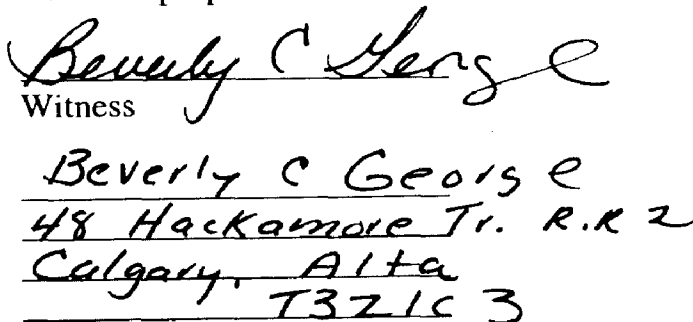 Beverly C George
Witness
Beverly C George
48 Hackamore Tr. R.R 2
Calgary, Alta
T3Z1C3